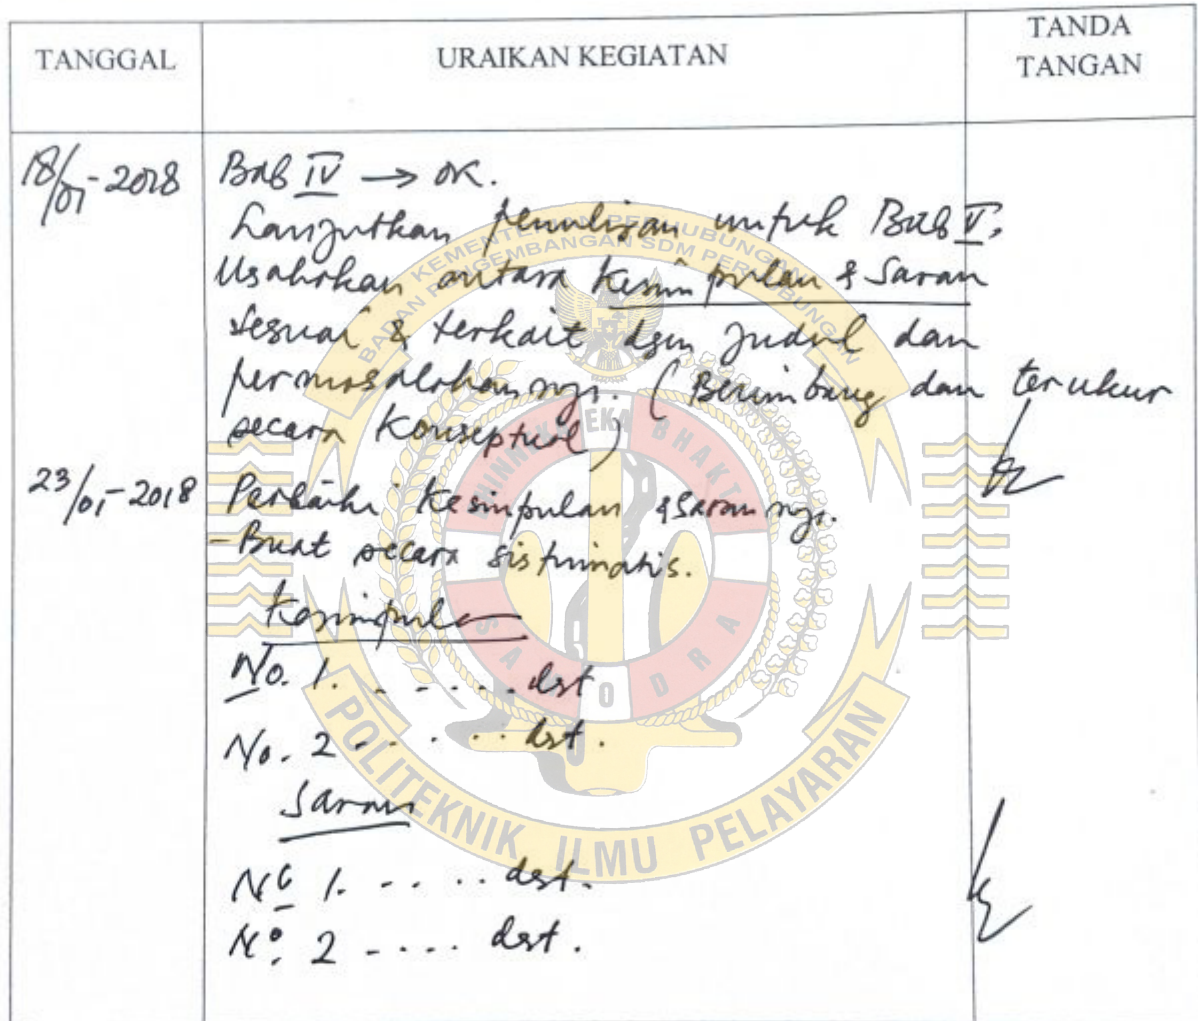 TANGGAL URAIKAN KEGIATAN TANDA
TANGAN
18/01-2018 Bab IV → OK.
Lanjutkan penulisan untuk Bab V.
Usahakan antara Kesimpulan & Saran
sesuai & terkait dgn judul dan
permasalahannya. (Berimbang dan terukur
secara Konseptual)
23/01-2018 Perbaiki Kesimpulan & Sarannya.
- Buat secara sistimatis.
Kesimpulan
No. 1. . . . . . . dst
No. 2 . . . . . . dst.
Saran
No 1. . . . . dst.
No. 2 . . . . dst.
BADAN PENGEMBANGAN SDM PERHUBUNGAN
KEMENTERIAN PERHUBUNGAN
BHAKTI
SAMODRA
POLITEKNIK ILMU PELAYARAN